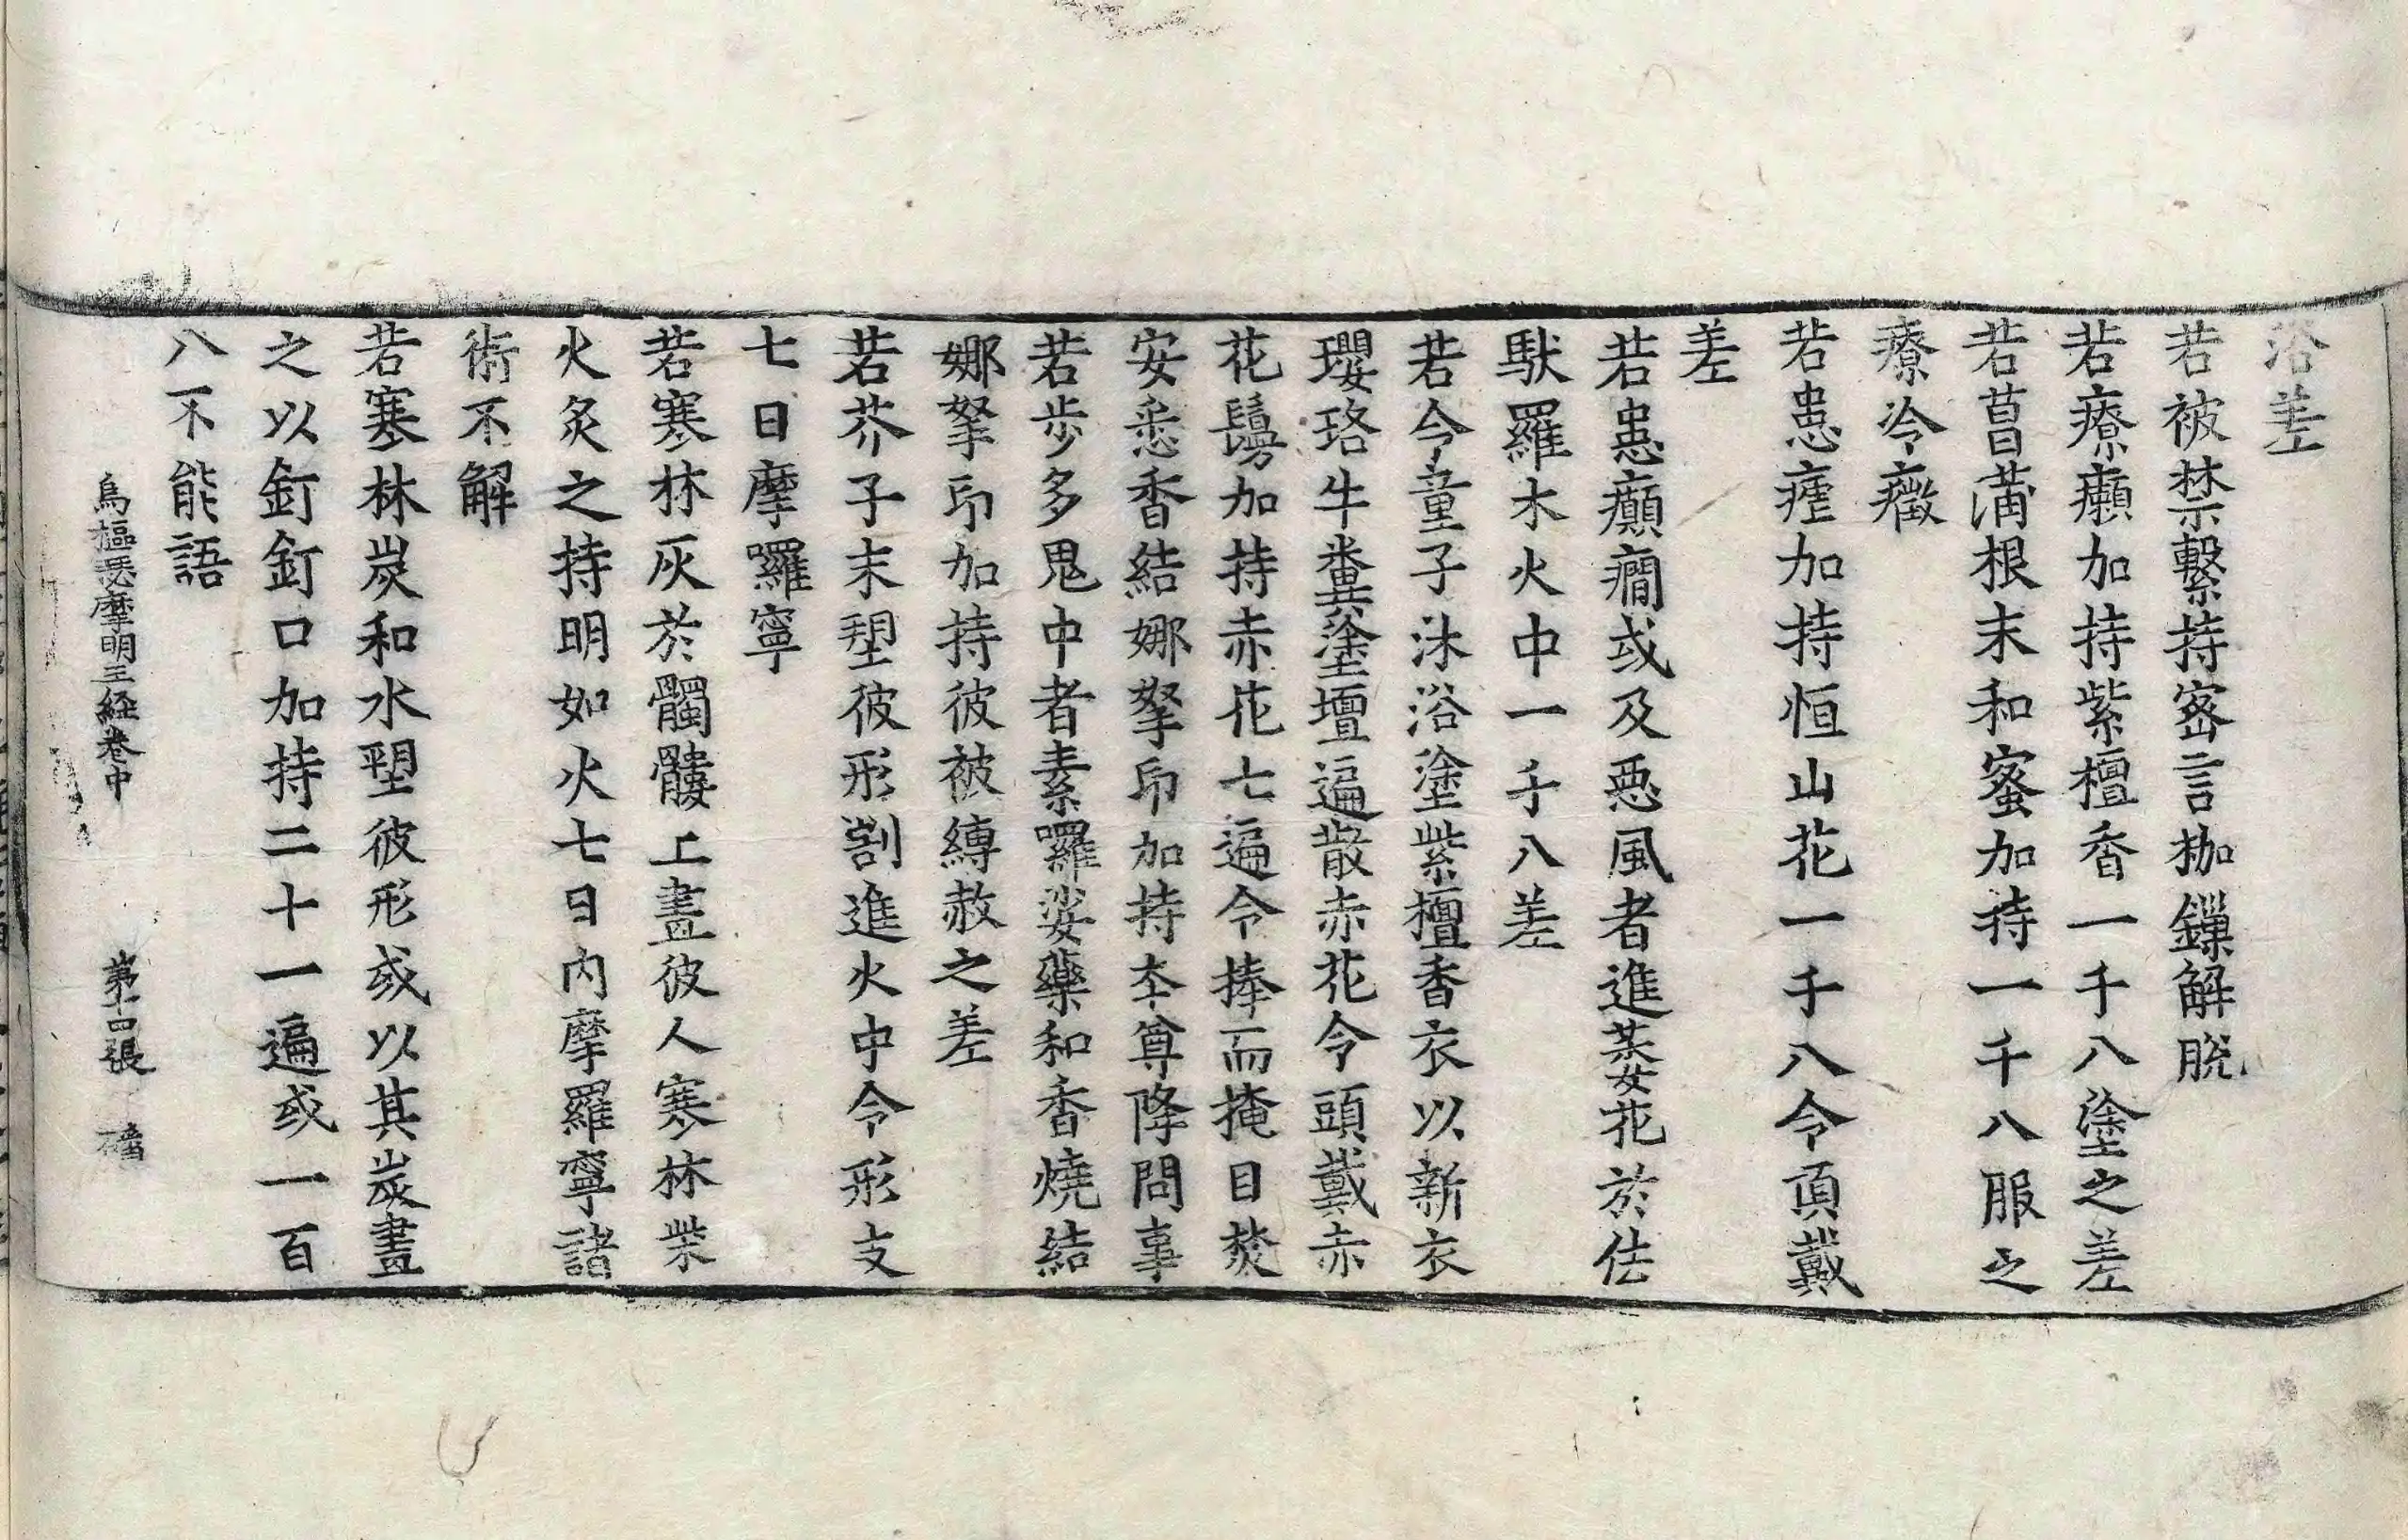 浴差
若被禁繫持密言枷鏁解脫
若療癩加持紫檀香一千八塗之差
若菖蒲根末和蜜加持一千八服之
療冷癥
若患瘧加持恒山花一千八令頂戴
差
若患癲癇或及惡風者進蔢花於佉
馱羅木火中一千八差
若令童子沐浴塗紫檀香衣以新衣
瓔珞牛糞塗壇遍散赤花令頭戴赤
花鬘加持赤花七遍令捧而掩目焚
安悉香結娜拏印加持夲尊降問事
若步多鬼中者素囉娑藥和香燒結
娜拏印加持彼被縛赦之差
若芥子末塑彼形割進火中令形支
七日摩囉寧
若寒林灰於髑髏上畫彼人寒林柴
火炙之持明如火七日內摩羅寧諸
術不解
若寒林炭和水塑彼形或以其炭畫
之以釘釘口加持二十一遍或一百
八不能語
烏樞瑟摩明王経卷中 第十四張